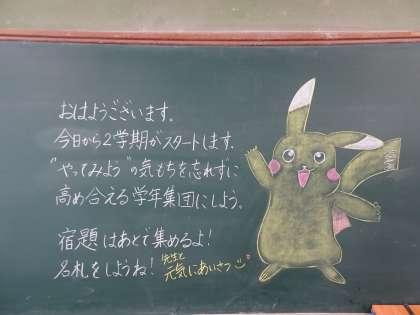 おはようございます。
今日から2学期がスタートします。
"やってみよう"の気もちを忘れずに
高め合える学年集団にしよう。
宿題はあとで集めるよ!
名札をしようね!
先生と
元気にあいさつ